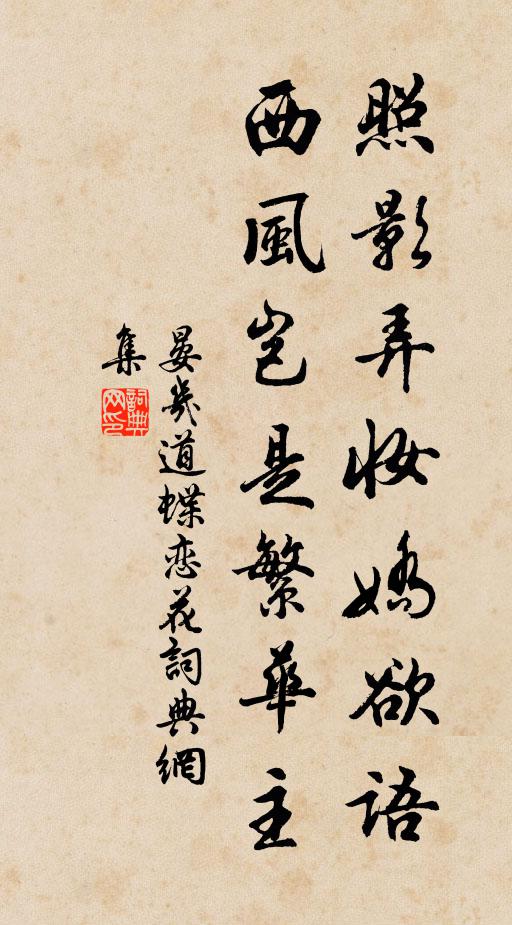 照影弄妝嬌欲語
西風豈是繁華主
晏幾道蝶恋花詞典網
集
詞典
网印